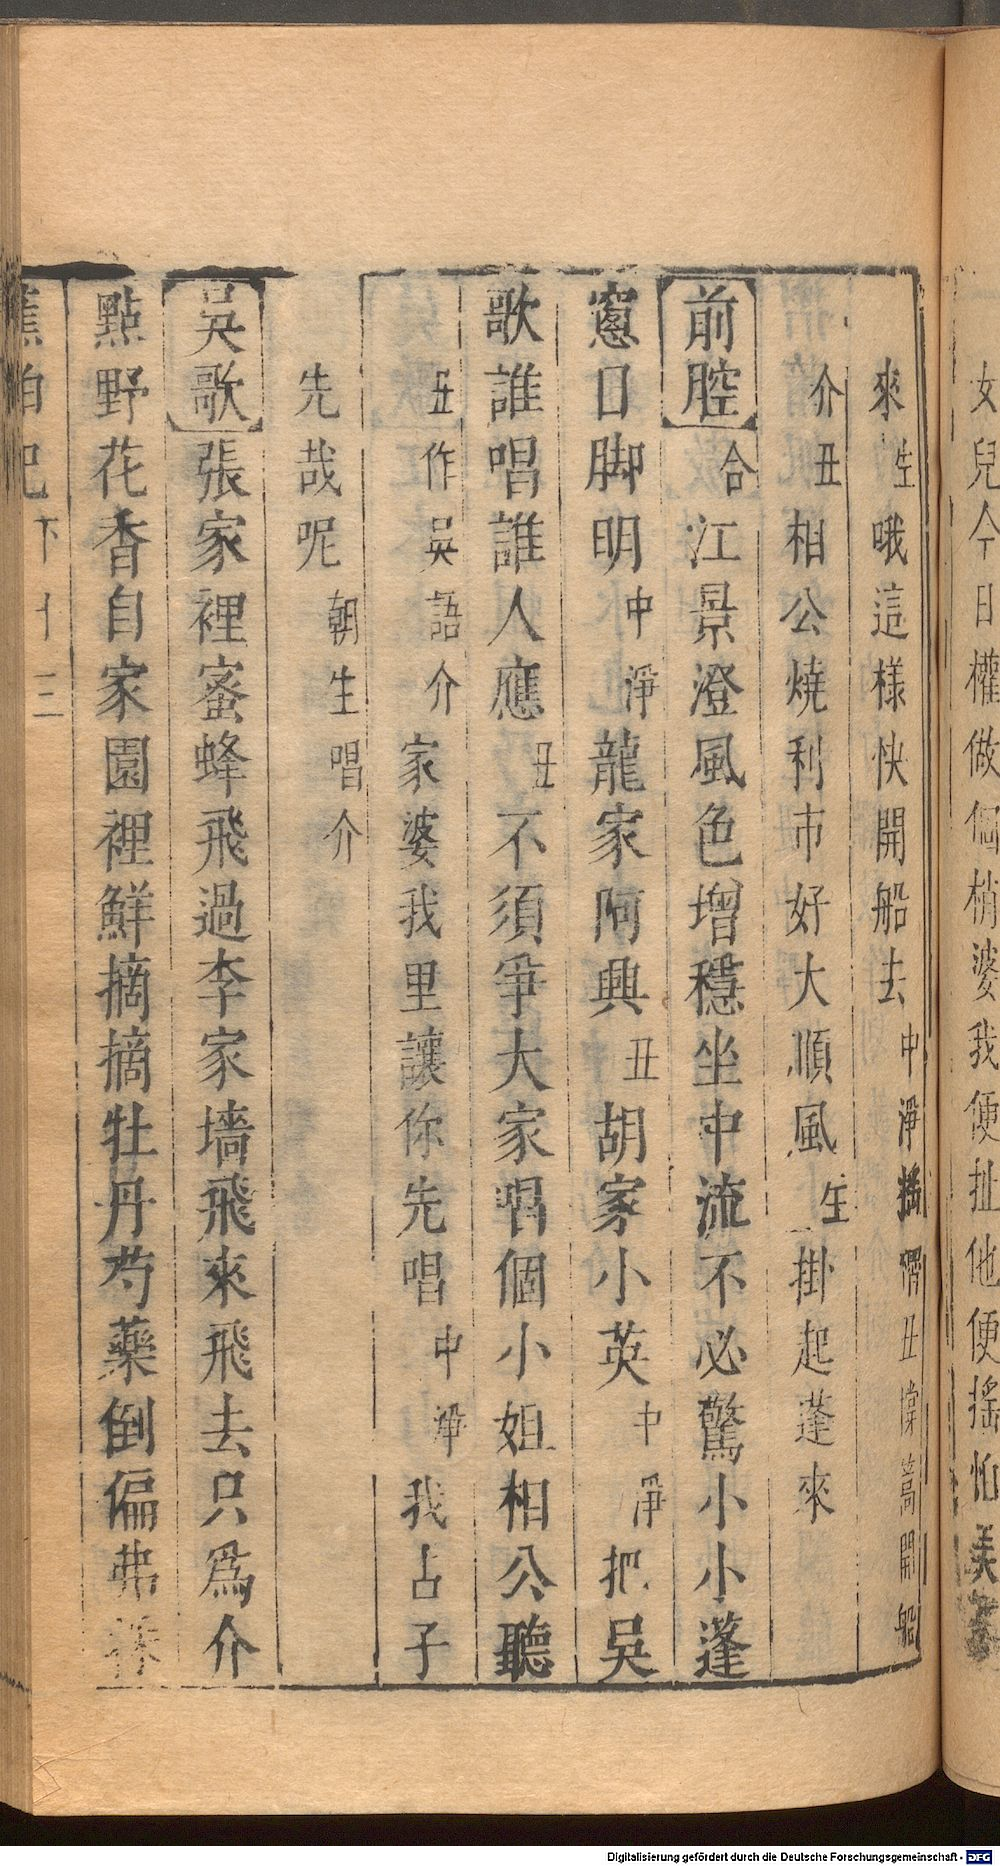 女兒今日權做個梢婆我便扯他便搖怕
來生哦這樣快開船去中淨搖櫓丑撐篙開船
介丑相公燒利市好大順風生掛起蓬來
前腔合江景澄風色增穩坐中流不必驚小小蓬
窻日脚明中淨龍家阿興丑胡家小英中淨把吳
歌誰唱誰人應丑不須爭大家唱個小姐相公聽
丑作吳語介家婆我里讓你先唱中淨我占子
先哉呢朝生唱介
吳歌張家裡蜜蜂飛過李家墻飛來飛去只爲介
點野花香自家園裡鮮摘摘牡丹芍藥倒偏弗
蕉帕記 下 十三
Digitalisierung gefördert durch die Deutsche Forschungsgemeinschaft - DFG